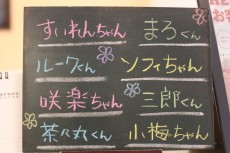 すいれんちゃん
まろくん
ルークくん
ソフィちゃん
咲楽ちゃん
三郎くん
茶々丸くん
小梅ちゃん